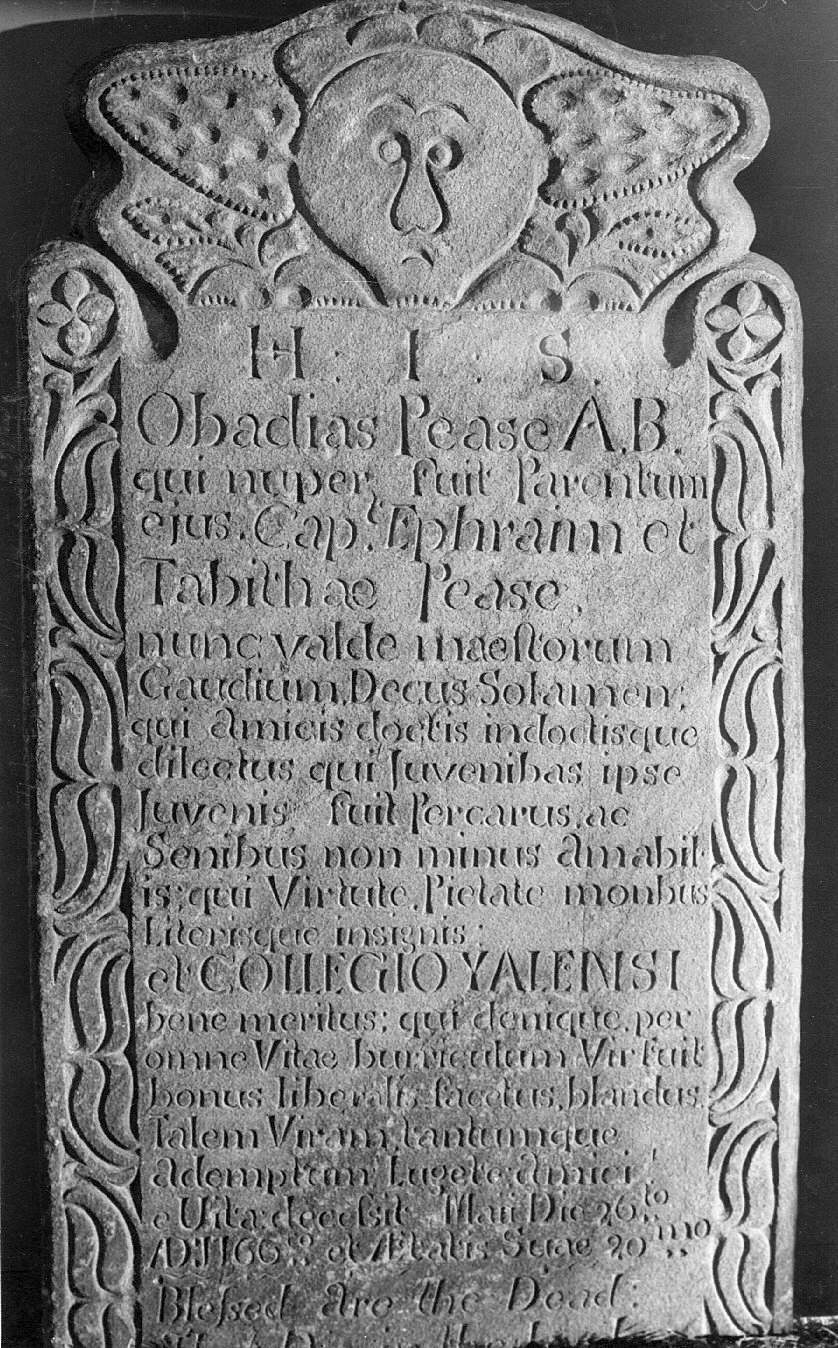 H : I : S :
Obadias Pease A.B.
qui nuper, fuit Parentum
ejus. Capt. Ephraim et
Tabithae Pease,
nunc, valde maeſtorum
Gaudium, Decus Solamen;
qui amicis doctis indoctisque
dilectus qui Juvenibas ipse
Juvenis fuit Percarus, ac
Senibus non minus amabil
is; qui Virtute, Pietate monbus
Literisque insignis:
et COLLEGIO YALENSI
bene meritus; qui denique, per
omne Vitae burriculum Vir fuit
bonus liberalis, facetus, blandus,
Talem Viram, tantumque
ademptum, Lugete, amici,
e Uita, deceſsit Maii Die 26to
AD. 1766 et Ætatis Suae 20mo
Bleſsed are the Dead: